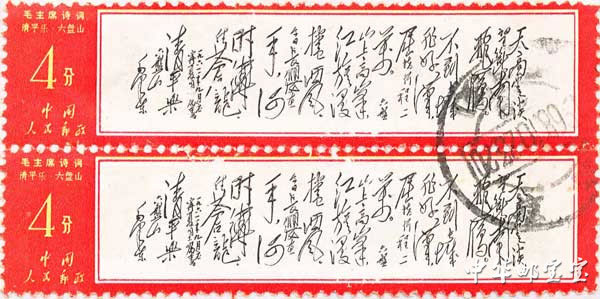 毛主席诗词
清平乐·六盘山
4分
中国
人民邮政
天高云淡
望断南飞
雁
不到长城
非好汉
屈指行程二
万
六盘
山上高峰
红旗漫
卷西风
今日长缨在
手
何
时缚
住苍龙
清平乐
六盘山
毛泽东
毛主席诗词
清平乐·六盘山
4分
中国
人民邮政
天高云淡
望断南飞
雁
不到长城
非好汉
屈指行程二
万
六盘
山上高峰
红旗漫
卷西风
今日长缨在
手
何
时缚
住苍龙
清平乐
六盘山
毛泽东
中华邮宝宝